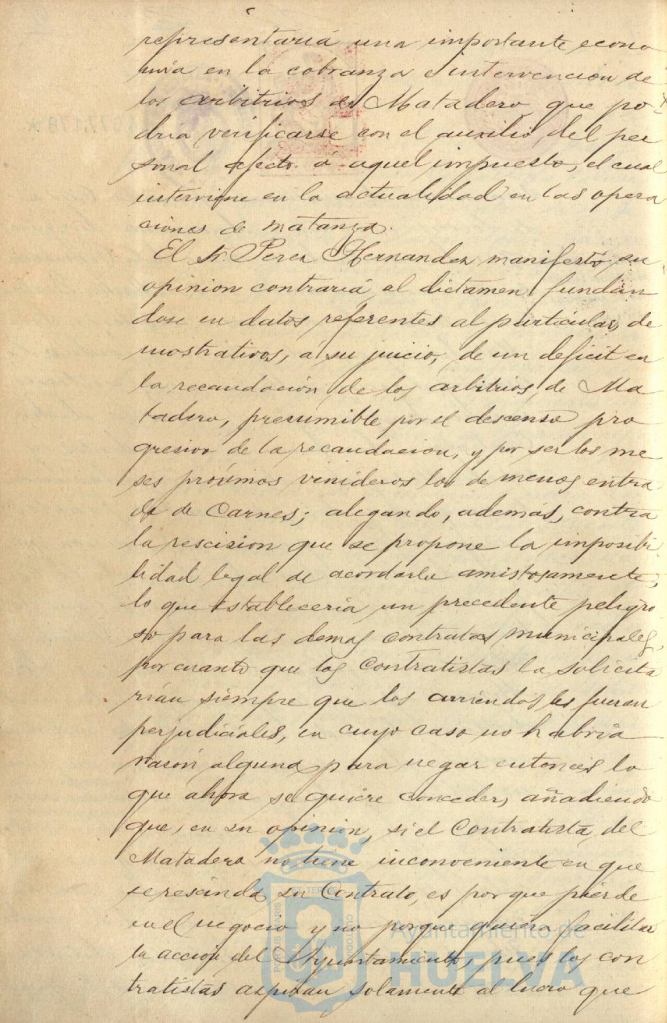 representaria una importante econo
mia en la cobranza é intervención de
los arbitrios de Matadero que po
dria verificarse con el auxilio del per
sonal afecto á aquel impuesto, el cual
interviene en la actualidad en las opera
ciones de matanza.
El Sr. Perez Hernandez manifestó su
opinion contraria al dictamen fundan
dose en datos referentes al particular, de
mostrativos, á su juicio, de un deficit en
la recaudacion de los arbitrios de Ma
tadero, presumible por el descenso pro
gresivo de la recaudacion, y por ser los me
ses próximos venideros los de menos entra
da de Carnes; alegando, además, contra
la rescision que se propone la imposibi
lidad legal de acordarla amistosamente,
lo que estableceria un precedente peligro
so para las demas contratas municipales,
por cuanto que los Contratistas la solicita
rian siempre que los arriendos les fueran
perjudiciales, en cuyo caso no habria
razón alguna para negar entonces lo
que ahora se quiere conceder, añadiendo
que, en su opinion, si el Contratista del
Matadero no tiene inconveniente en que
se rescinda su Contrato, es por que pierde
en el negocio y no porque quiera facilitar
la acción del Ayuntamiento, pues los con
tratistas aspiran solamente al lucro que
Ayuntamiento de
HUELVA